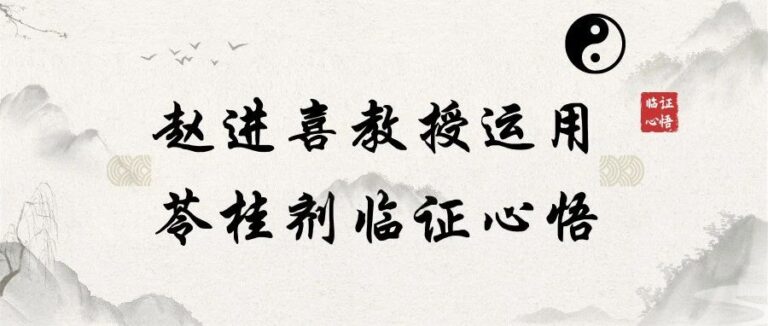 赵进喜教授运用
苓桂剂临证心悟
临证
心悟